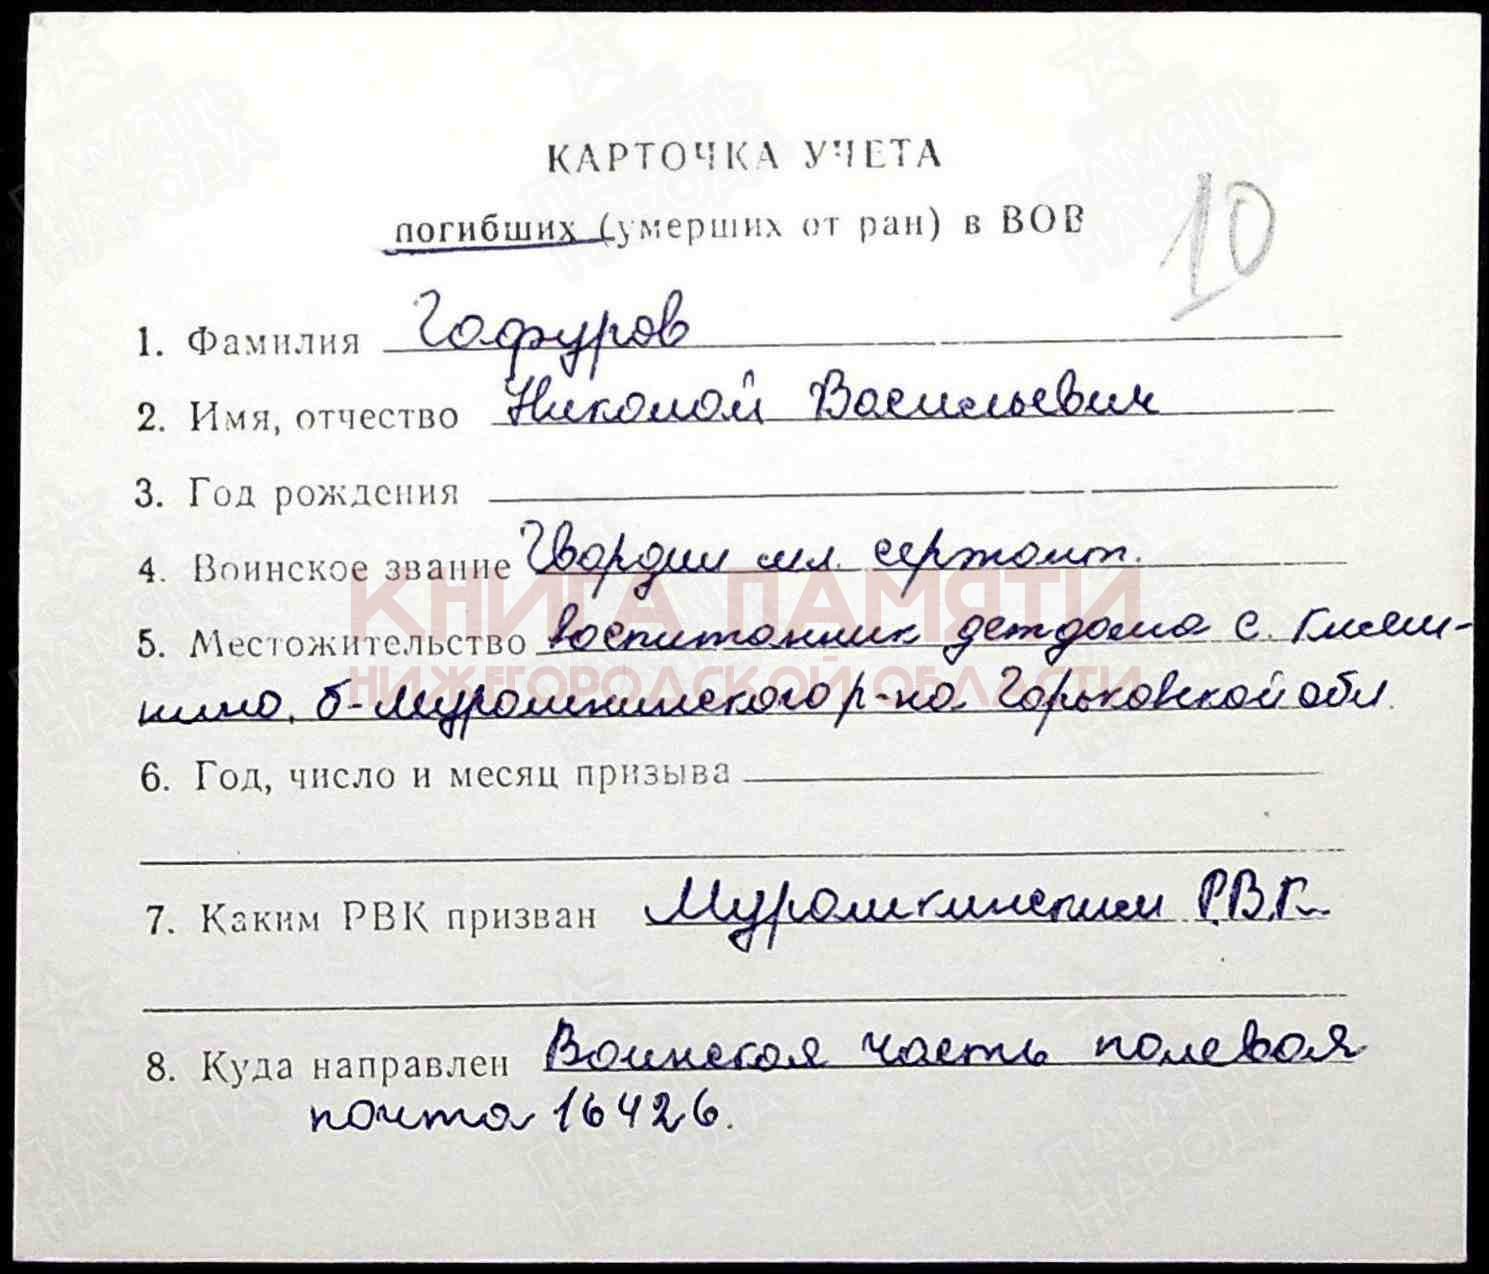 КАРТОЧКА УЧЕТА
погибших (умерших от ран) в ВОВ
10
1. Фамилия Гафуров
2. Имя, отчество Николай Васильевич
3. Год рождения
4. Воинское звание Гвардии мл. сержант.
КНИГА ПАМЯТИ
5. Местожительство воспитанник детдома с.
НИЖЕГОРОДСКОЙ ОБЛАСТИ
б-Мурашкинского р-на Горьковской обл.
6. Год, число и месяц призыва
7. Каким РВК призван Мурашкинским РВК
8. Куда направлен Воинская часть полевая
почта 16426.
ПАМЯТЬ НАРОДА